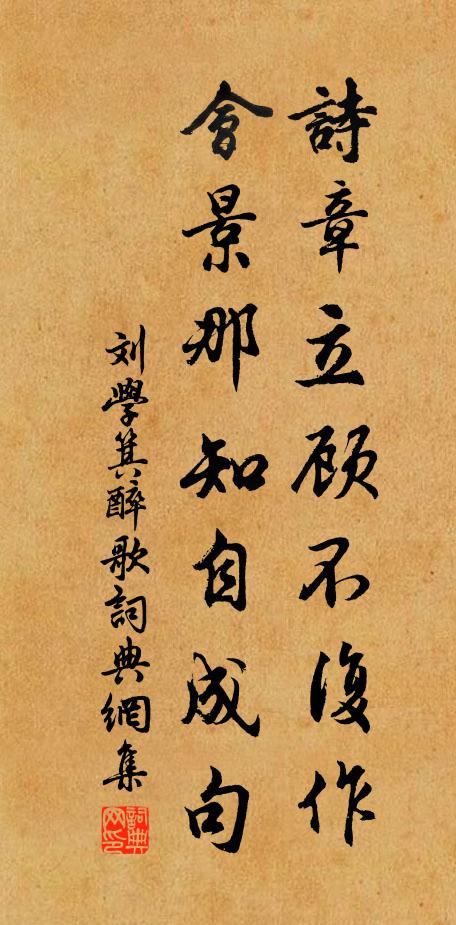 詩章立顾不復作
會景那知自成句
刘學箕醉歌詞典網集
詞典网印